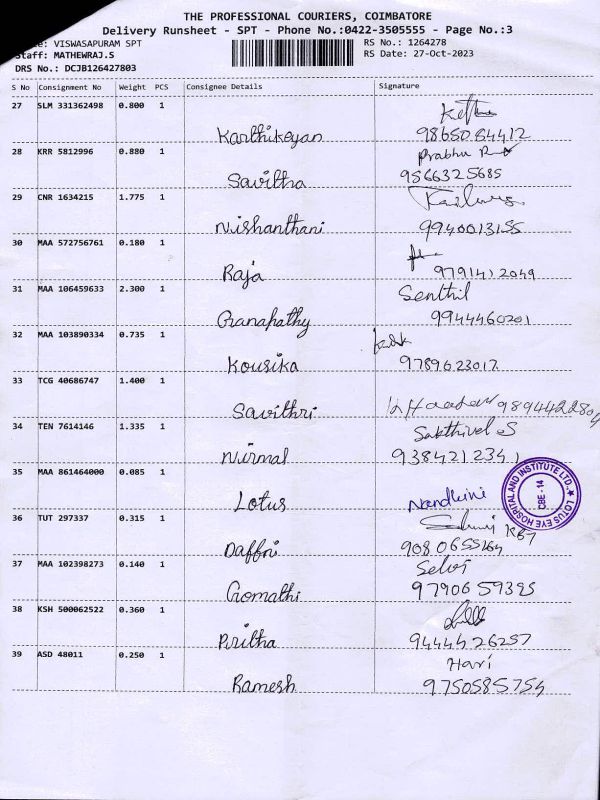 THE PROFESSIONAL COURIERS, COIMBATORE
Delivery Runsheet - SPT - Phone No.:0422-3505555 - Page No.:3
VISWASAPURAM SPT RS No.: 1264278
Staff: MATHEWRAJ.S RS Date: 27-Oct-2023
DRS No.: DCJB126427803
S No Consignment No Weight PCS Consignee Details Signature
27 SLM 331362498 0.800 1
Karthikeyan 9865084412
28 KRR 5812996 0.880 1 Prabhu
Savitha 9566325685
29 CNR 1634215 1.775 1
Nishanthani 9940013155
30 MAA 572756761 0.180 1
Raja 9791412049
31 MAA 106459633 2.300 1 Senthil
Ganapathy 9944460201
32 MAA 103890334 0.735 1
Kousika 9789623017
33 TCG 40686747 1.400 1
Savithri 9894422804
34 TEN 7614146 1.335 1 Sakthivel S
Nirmal 9384212341
35 MAA 861464000 0.085 1
Lotus Nandhini
LOTUS EYE HOSPITAL AND INSTITUTE LTD.
CBE - 14
36 TUT 297337 0.315 1
Daffni 9080655164
37 MAA 102398273 0.140 1 Selvi
Gomathi 9790659395
38 KSH 500062522 0.360 1
Piritha 9444426257
39 ASD 48011 0.250 1 Hari
Ramesh 9750585754